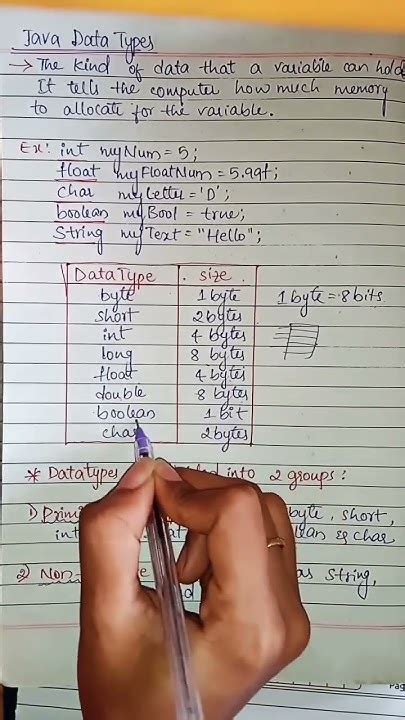 Java Data Types
→ The kind of data that a variable can hold
It tells the computer how much memory
to allocate for the variable.
Ex: int myNum = 5;
float myFloatNum = 5.99f;
char myLetter = 'D';
boolean myBool = true;
String myText = "Hello";
DataType size
byte 1 byte 1 byte = 8 bits
short 2 bytes
int 4 bytes
long 8 bytes
float 4 bytes
double 8 bytes
boolean 1 bit
char 2 bytes
* Datatypes into 2 groups:
1) byte, short,
int & char
2) as String,